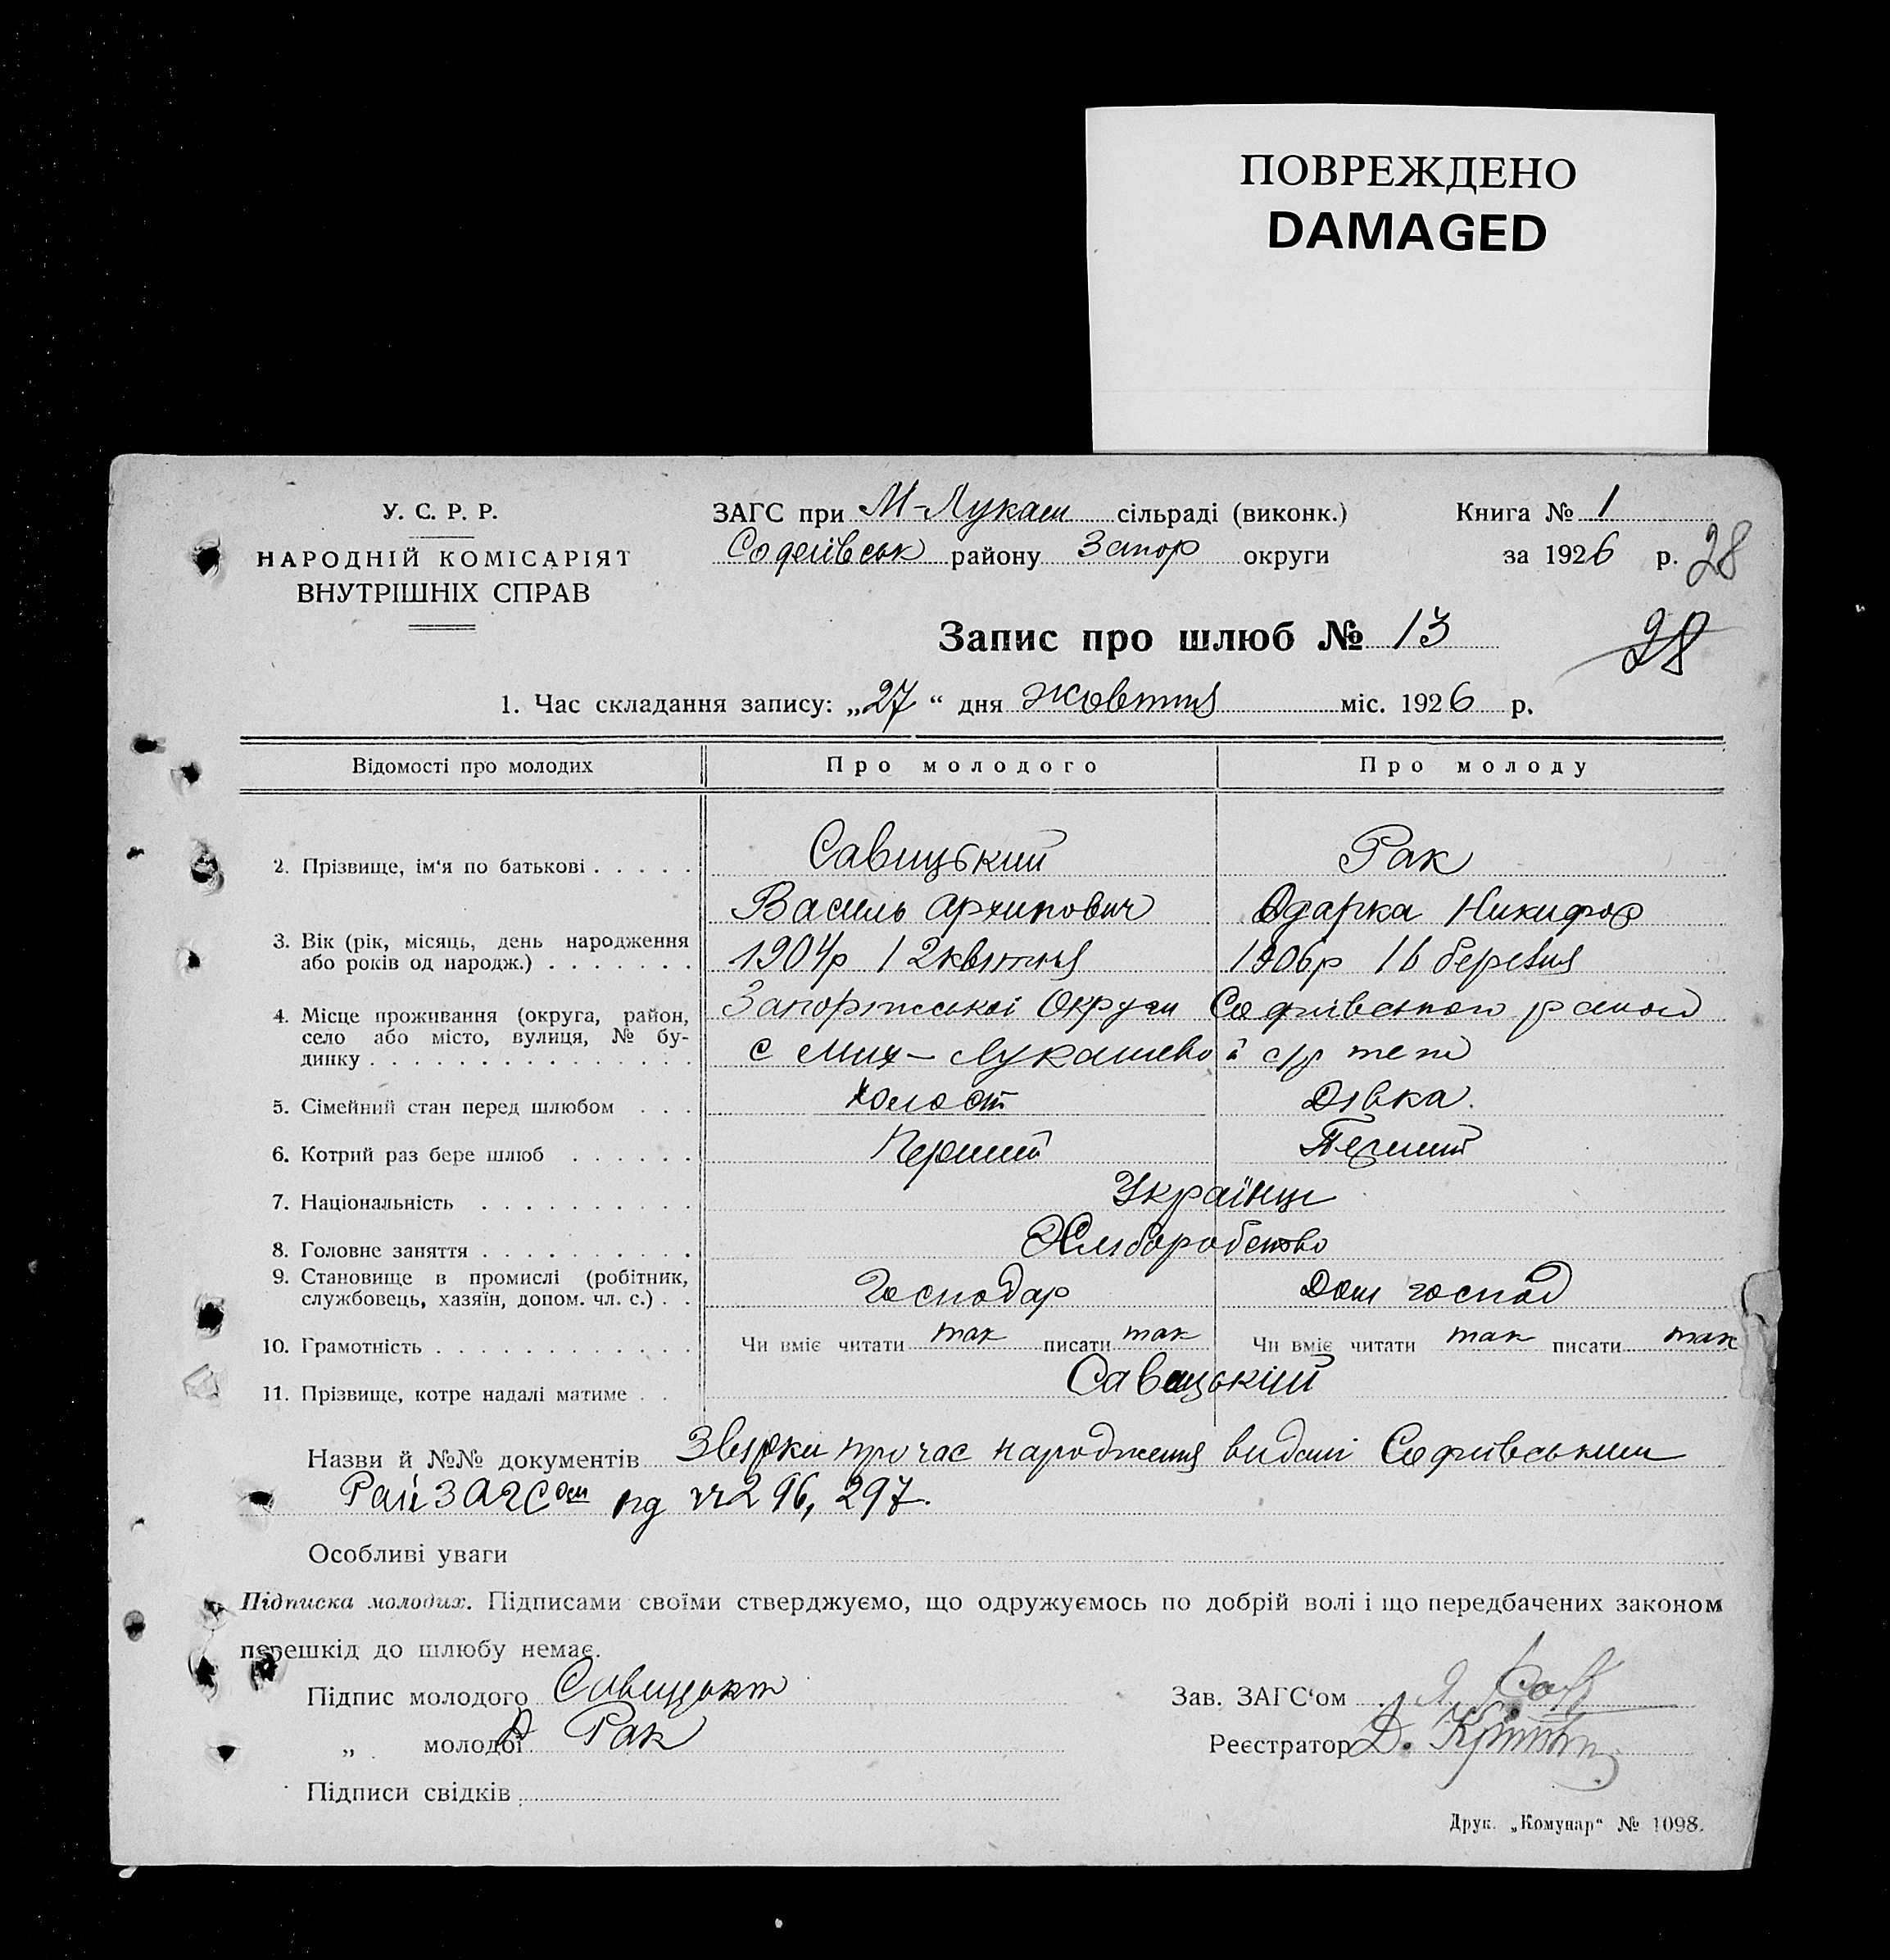 ПОВРЕЖДЕНО
DAMAGED
У. С. Р. Р.
НАРОДНІЙ КОМІСАРІЯТ
ВНУТРІШНІХ СПРАВ
ЗАГС при М-Лукаш сільраді (виконк.)
Софіївськ району Запор округи
Книга № 1
за 1926 р.
28
28
Запис про шлюб № 13
1. Час складання запису: „27“ дня жовтня міс. 1926 р.
Відомості про молодих Про молодого Про молоду
2. Прізвище, ім‘я по батькові . . . . . Савицький Рак
Василь Архипович Одарка Никифор
3. Вік (рік, місяць, день народження
або років од народж.) . . . . . . . 1904р 12 квітня 1906р 16 березня
4. Місце проживання (округа, район, Запоріжської Округи Софиівського району
село або місто, вулиця, № бу-
динку . . . . . . . . . . . . . . . с Мих-Лукашево
5. Сімейний стан перед шлюбом . . . холост Дівка.
6. Котрий раз бере шлюб . . . . . . Перший Перший
7. Національність . . . . . . . . . . Українці
8. Головне заняття . . . . . . . . . . Хліборобство
9. Становище в промислі (робітник,
службовець, хазяїн, допом. чл. с.) . . Господар Дом господ
10. Грамотність . . . . . . . . . . . . Чи вміє читати так писати так Чи вміє читати так писати так
11. Прізвище, котре надалі матиме . . Савицький
Назви й №№ документів Звірки про час народження видані Софиівським
РайЗАГСом під №296, 297.
Особливі уваги
Підписка молодих. Підписами своїми стверджуємо, що одружуємось по добрій волі і що передбачених законом
перешкід до шлюбу немає.
Підпис молодого Савицький
„ молодої Рак
Підписи свідків
Зав. ЗАГС‘ом
Реєстратор Д.
Друк. „Комунар“ № 1098.